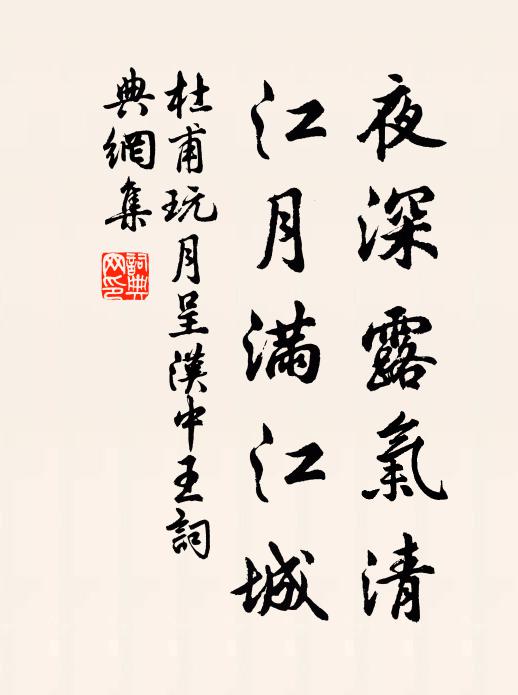 夜深露氣清
江月滿江城
杜甫玩月呈漢中王詞
典網集
詞典
网印